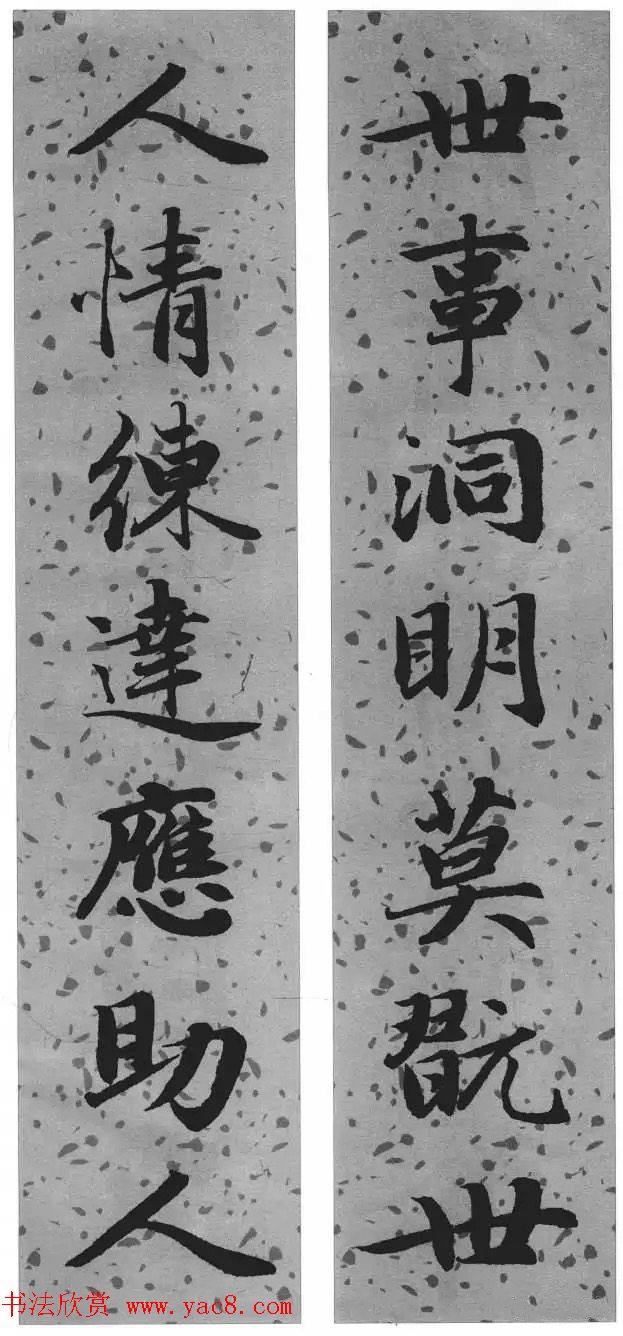 世事洞明莫翫世
人情練達應助人
书法欣赏 www.yac8.com